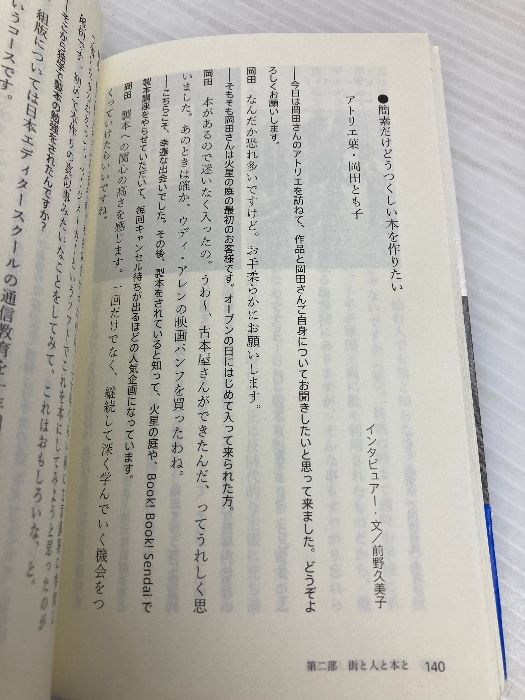 ●簡素だけどうつくしい本を作りたい
アトリエ葉・岡田とも子
インタビュアー・文／前野久美子
――今日は岡田さんのアトリエを訪ねて、作品と岡田さんご自身についてお聞きしたいと思って来ました。どうぞよ
ろしくお願いします。
岡田　なんだか恐れ多いですけど。お手柔らかにお願いします。
――そもそも岡田さんは火星の庭の最初のお客様です。オープンの日にはじめて入って来られた方。
岡田　本があるので迷いなく入ったの。うわ〜、古本屋さんができたんだ、ってうれしく思
いました。あのときは確か、ウディ・アレンの映画パンフを買ったわね。
――こちらこそ、幸運な出会いでした。その後、製本をされていると知って、火星の庭や、Book! Book! Sendaiで
製本講座をやらせていただいて、毎回キャンセル待ちが出るほどの人気企画になっています。
岡田　製本への関心の高さを感じます。一回だけでなく、継続して深く学んでいく機会をつ
くっていけたらいいですね。
――そこから独学で製本の勉強をされたんですか？
組版については日本エディタースクールの通信教育を一年間
いうコースです。
第二部　街と人と本と　140